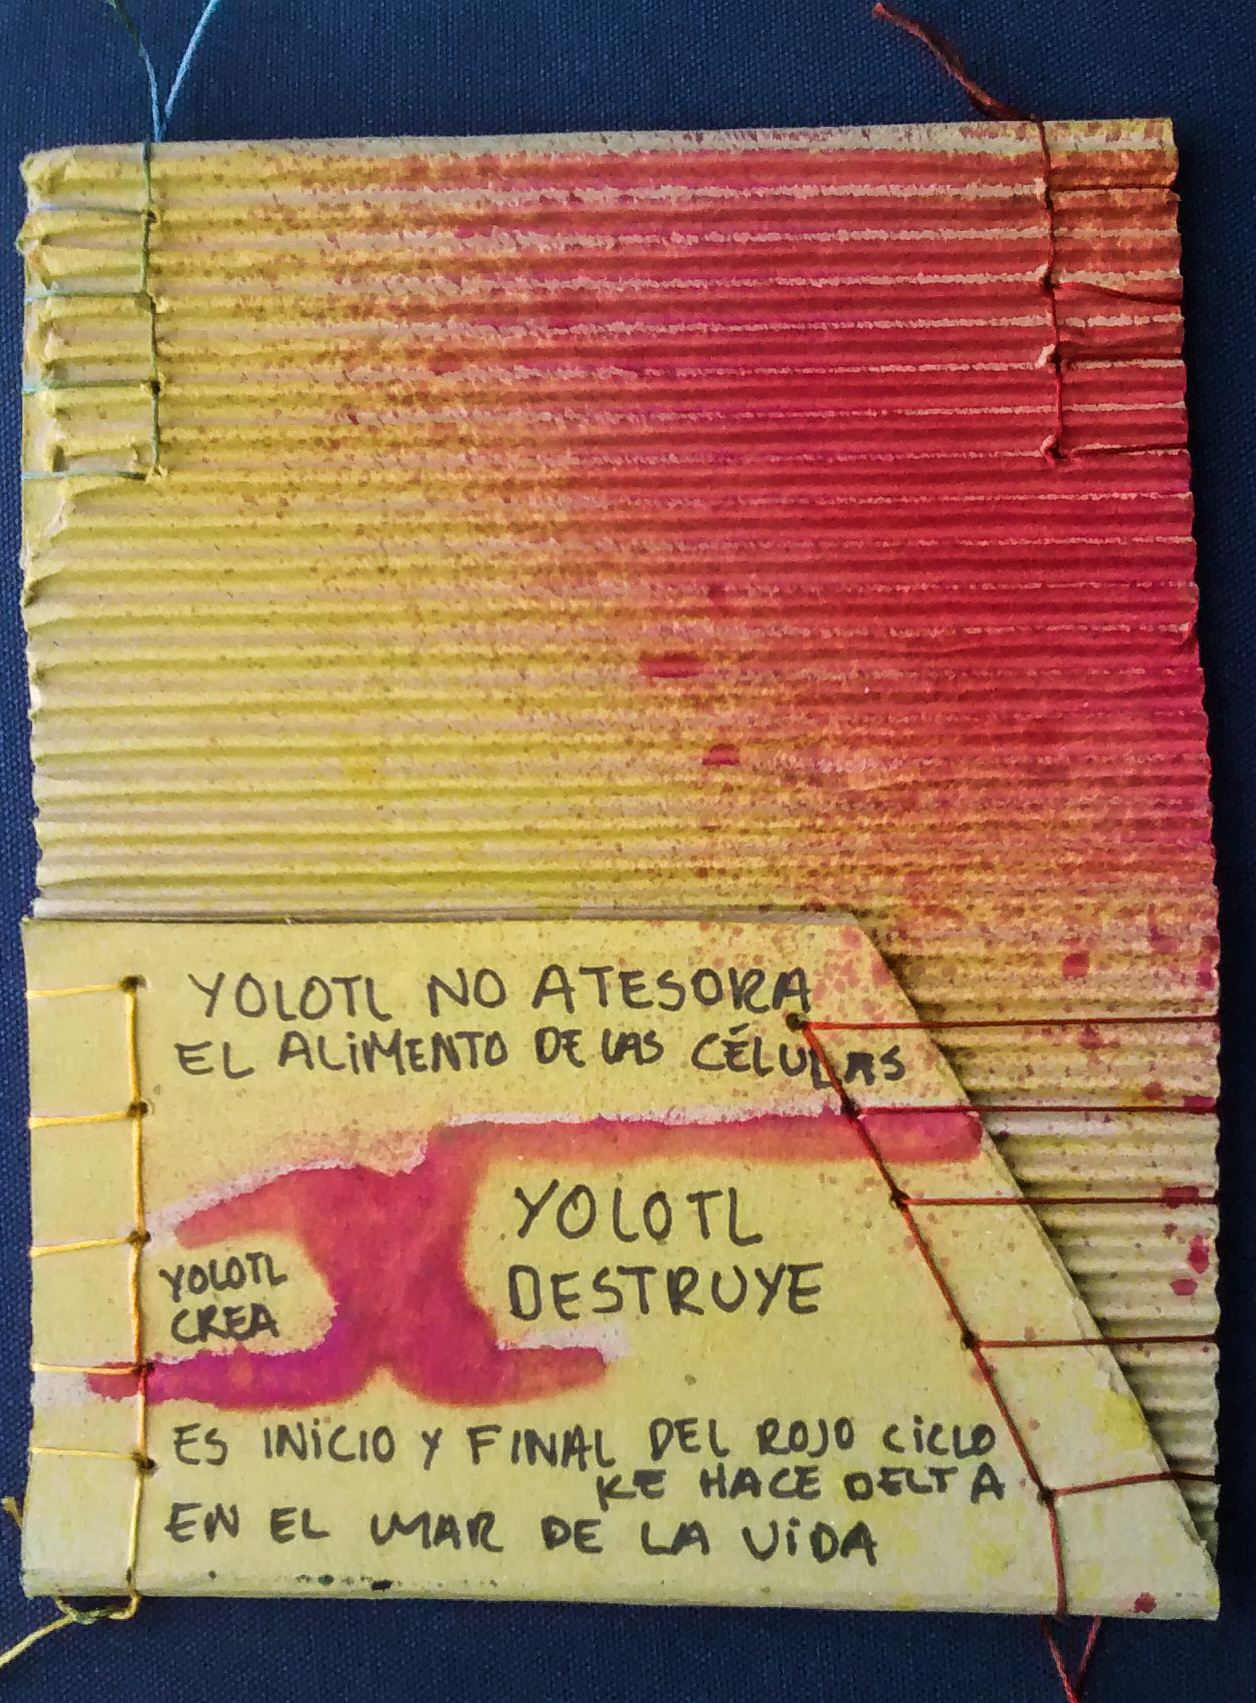 YOLOTL NO ATESORA
EL ALiMENTO DE LAS CÉLULAS
YOLOTL
DESTRUYE
YOLOTL
CREA
ES INiCIO Y FINAL DEL ROJO CiCLO
KE HACE DELTA
EN EL MAR DE LA ViDA